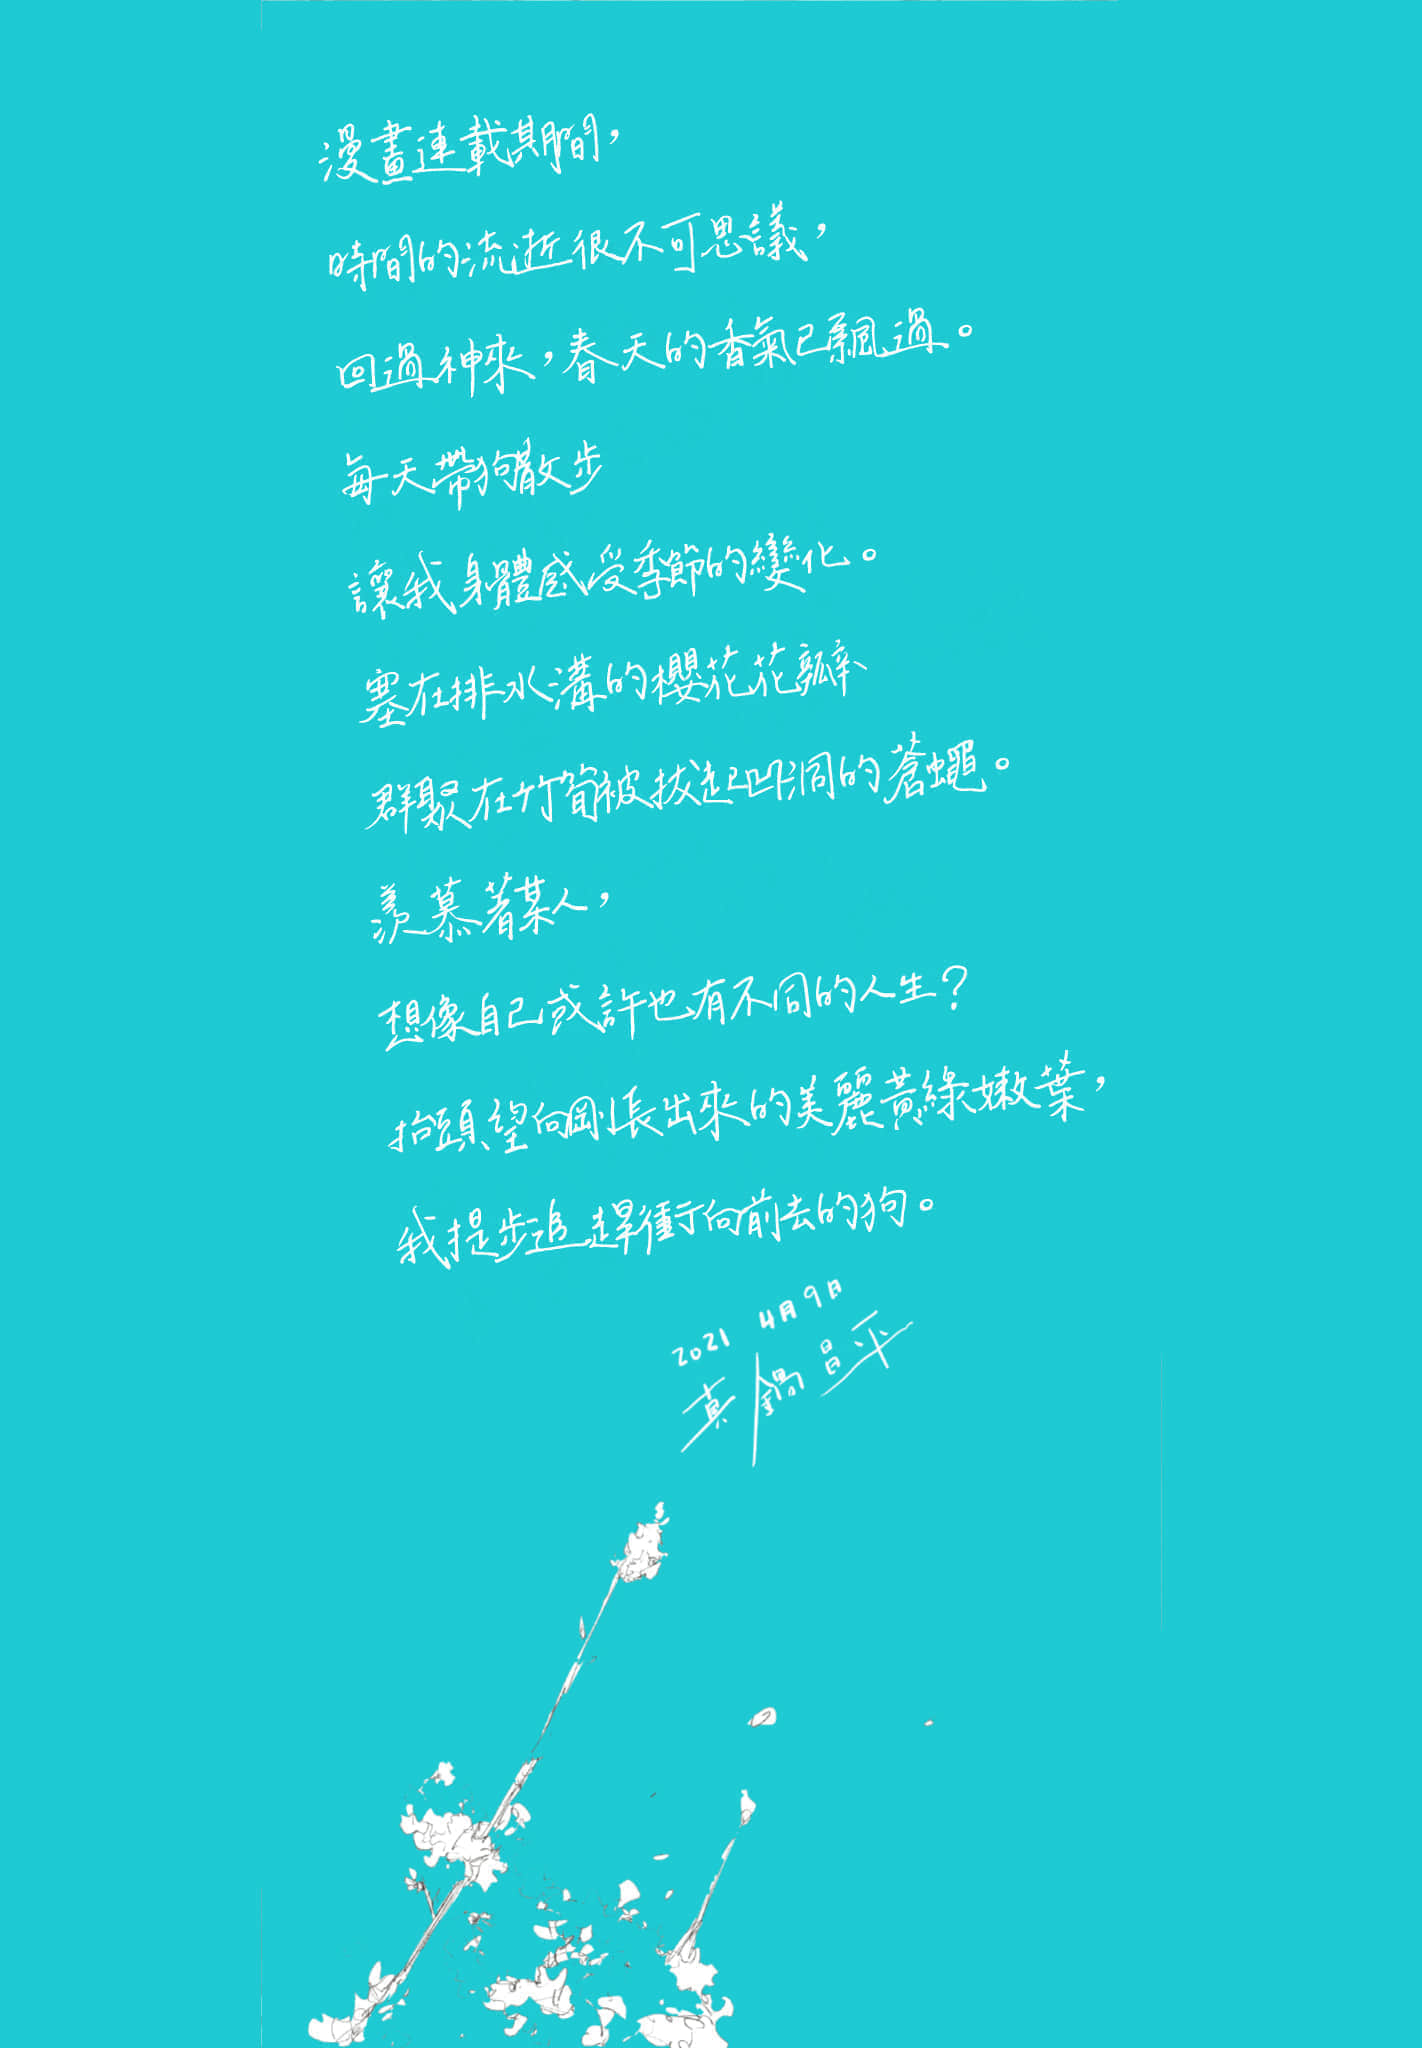 漫畫連載期間，
時間的流逝很不可思議，
回過神來，春天的香氣已飄過。
每天帶狗散步
讓我身體感受季節的變化。
塞在排水溝的櫻花花瓣
群聚在竹筍被拔起凹洞的蒼蠅。
羨慕著某人，
想像自己或許也有不同的人生？
抬頭望向剛長出來的美麗黃綠嫩葉，
我提步追趕衝向前去的狗。
2021 4月9日
真鍋昌平